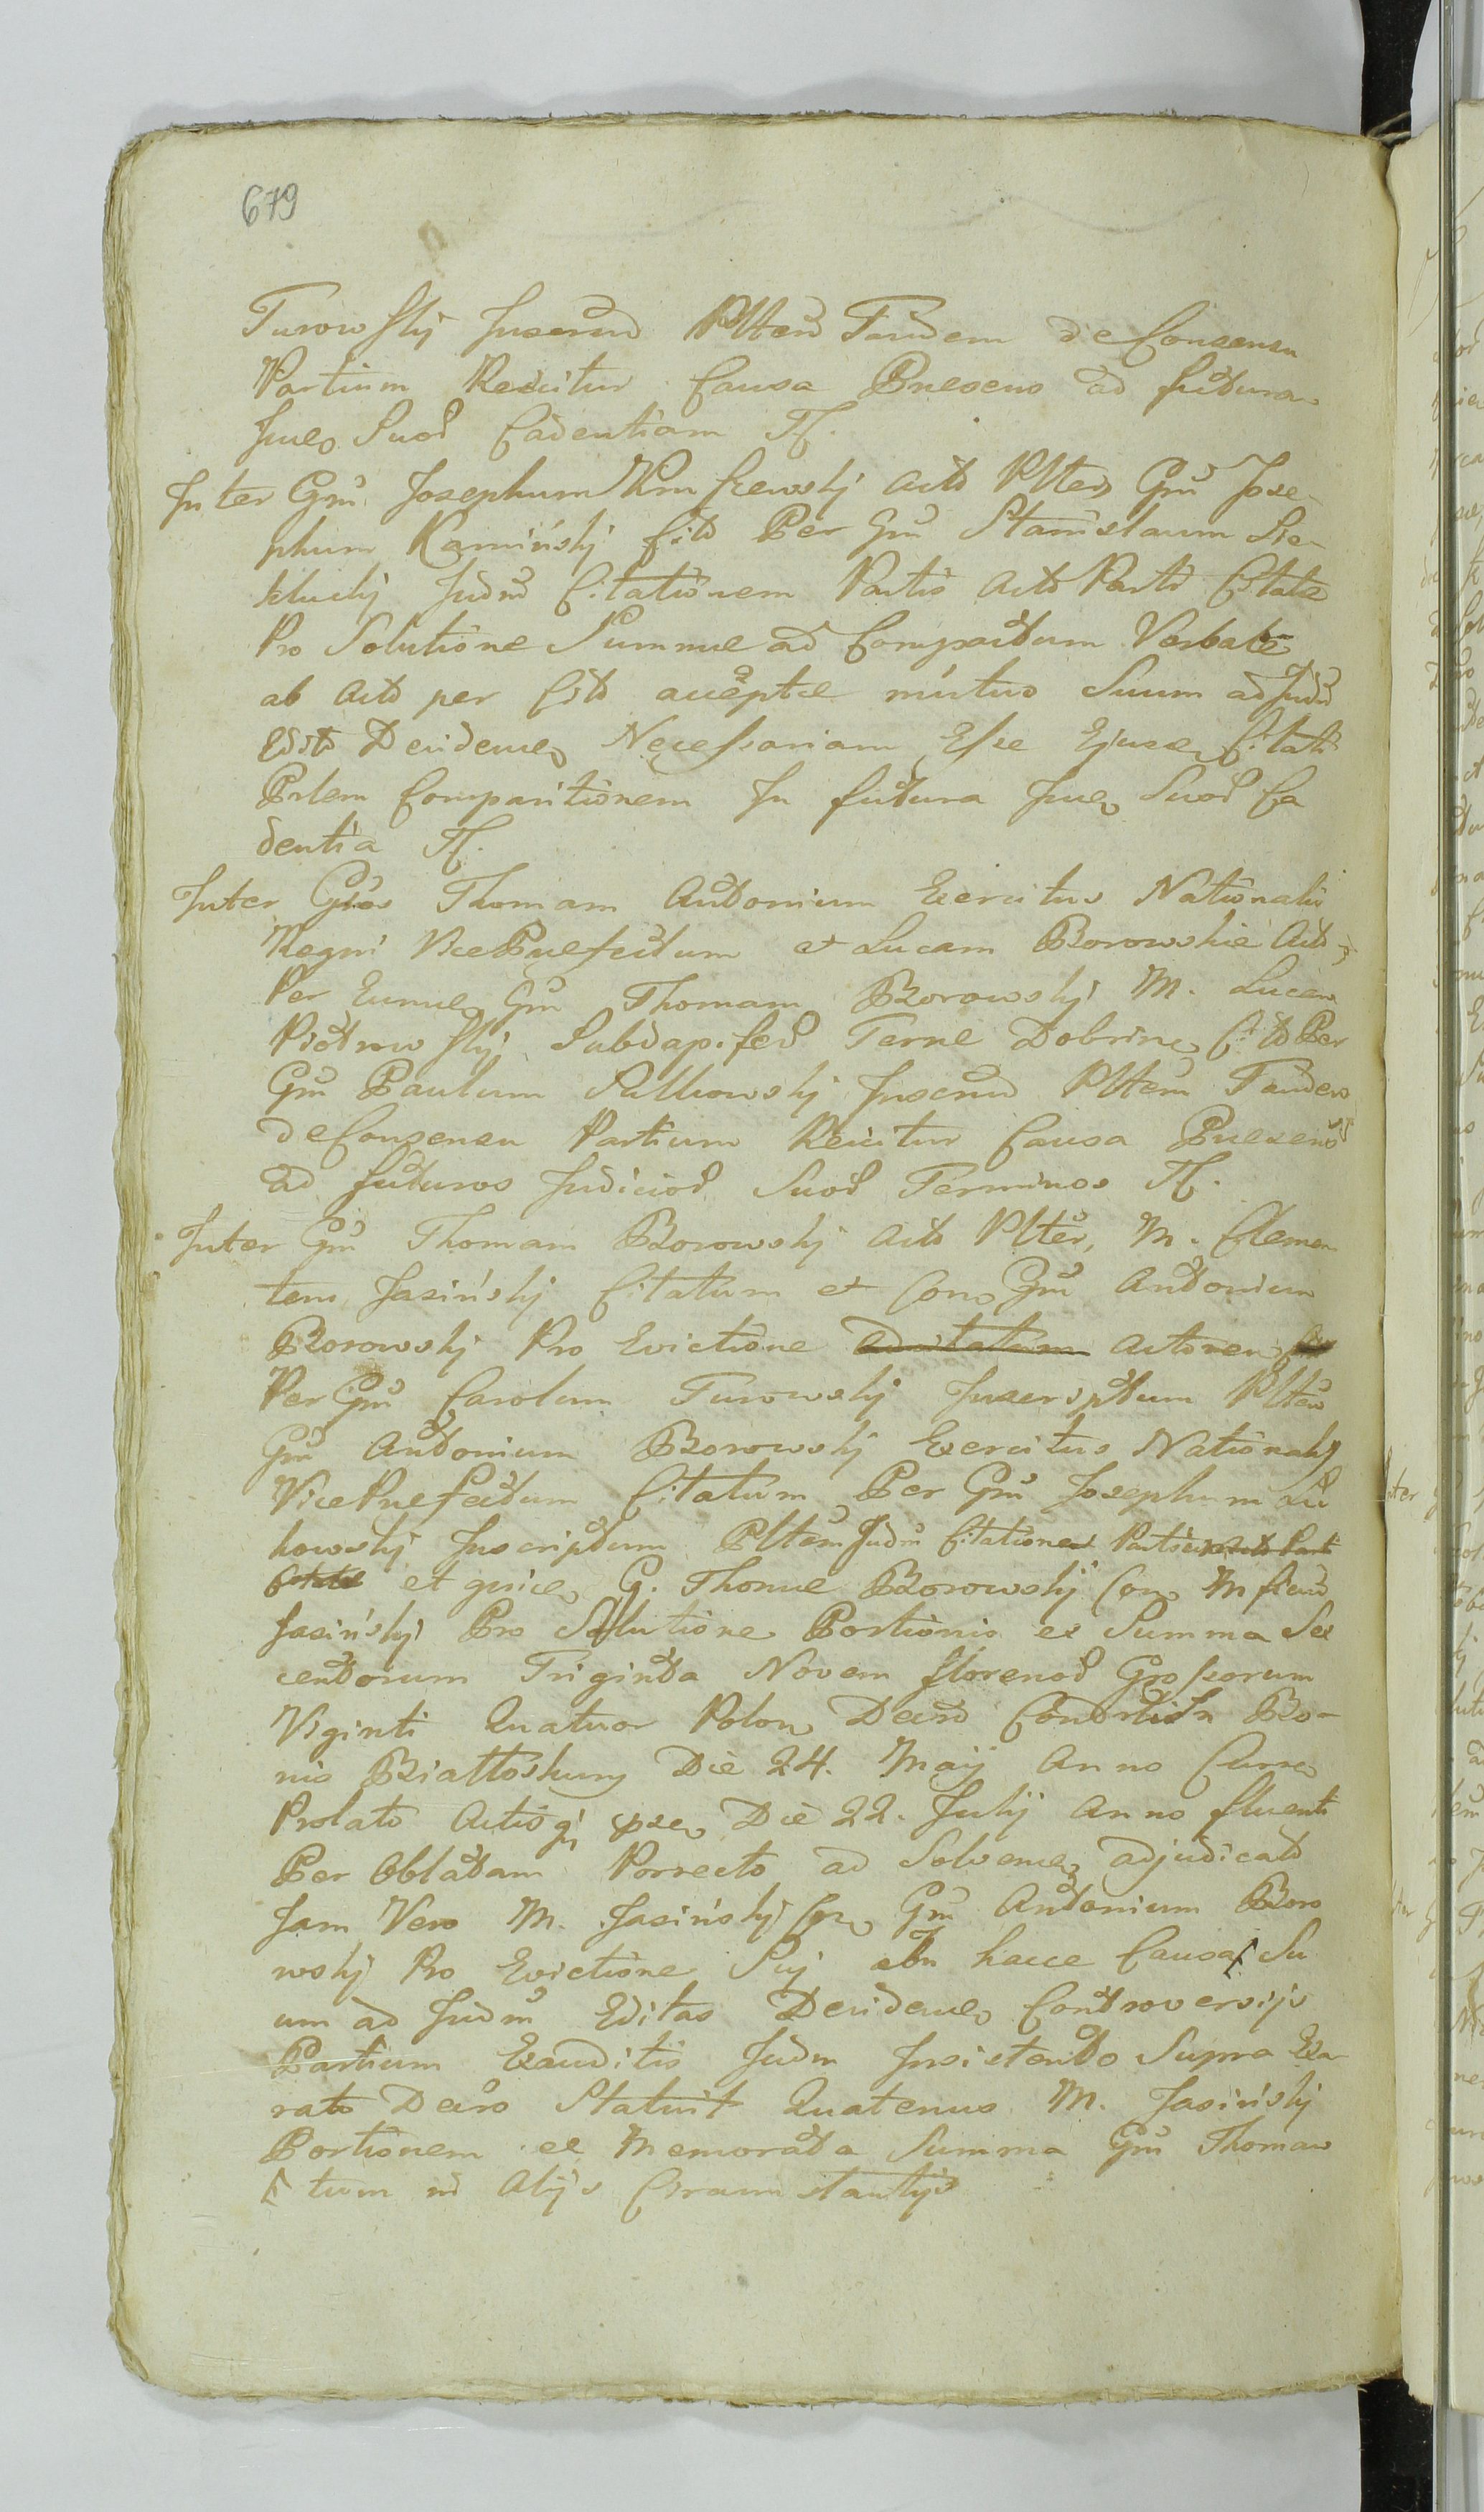 679
Turowskij Inserend Pltem Tandem de Consensu
Partium Reicitur Causa Presens ad futura
Juec Suoꝝ Cadentiam Tf.
Inter Gnm Josephum act Plten Gnm Jose-
phum Kamińskj Cit Per Gnm Stanislaum Sie-
kluckj Judm Citationem Partis act Parti Citatæ
Pro Solutione Summæ ad Computum Verbale
ab act per Cit acceptæ mutuo Suum ad Judm
Edit Decidenec Necessariam Esse Ejusce Citati
Prlem Comparitionem In futura Juec Suoꝝ Ca
dentia Tf.
Inter Gnos Thomam Antonium Exercitus Nationalis
Regni VicePræfectum et Lucam Borowskie act
Per Eumec Gnm Thomam Borowskj M. Lucam
Piotrowskij Subdapifed Terræ Dobrinec Cit Per
Gnm Paulum Sulkowskj Inserend Pltem Tandem
de Consensu Partium Reicitur Causa Presens
ad futuros Judicioꝝ Suoꝝ Terminos Tf.
Inter Gnm Thomam Borowskj act Plten, M. Clemen
tem Jasińskj Citatum et Con Gnm Antonium
Borowskj Pro Evictione adcitatum actorem
Per Gnm Carolum Turowskj Inscriptum Plten
Gnm Antonium Borowskj Exercitus Nationalis
VicePræfectum Citatum Per Gnm Josephum Su
kowskj Inscriptum Pltem Judm Citationes Partium act Parti
Citatæ et quiec G. Thomæ Borowskj Con Mficum
Jasińskj Pro Solutione Portionis ex Summa Sex
centorum Triginta Novem florenoꝝ Grossorum
Viginti Quatuor Polon Decro In Bo-
nis Białłoskury Die 24. Maij anno Curren
Prolato Die 22. Julij anno fluenti
Per Oblatam Porrecto ad Solvenec adjudicat
Jam Vero M. Jasińskj Con Gnm Antonium Boro
wskj Pro Evictione Sui in hacce Causa [ Su
um ad Judm Editas Decidenec Controversijs
Partium Exauditis Judm Insistendo Supra Exa
rato Decro Statuit Quatenus M. Jasińskj
Portionem ex Memorata Summa Gnm Thomam
[ tum in Alijs Circumstantijs